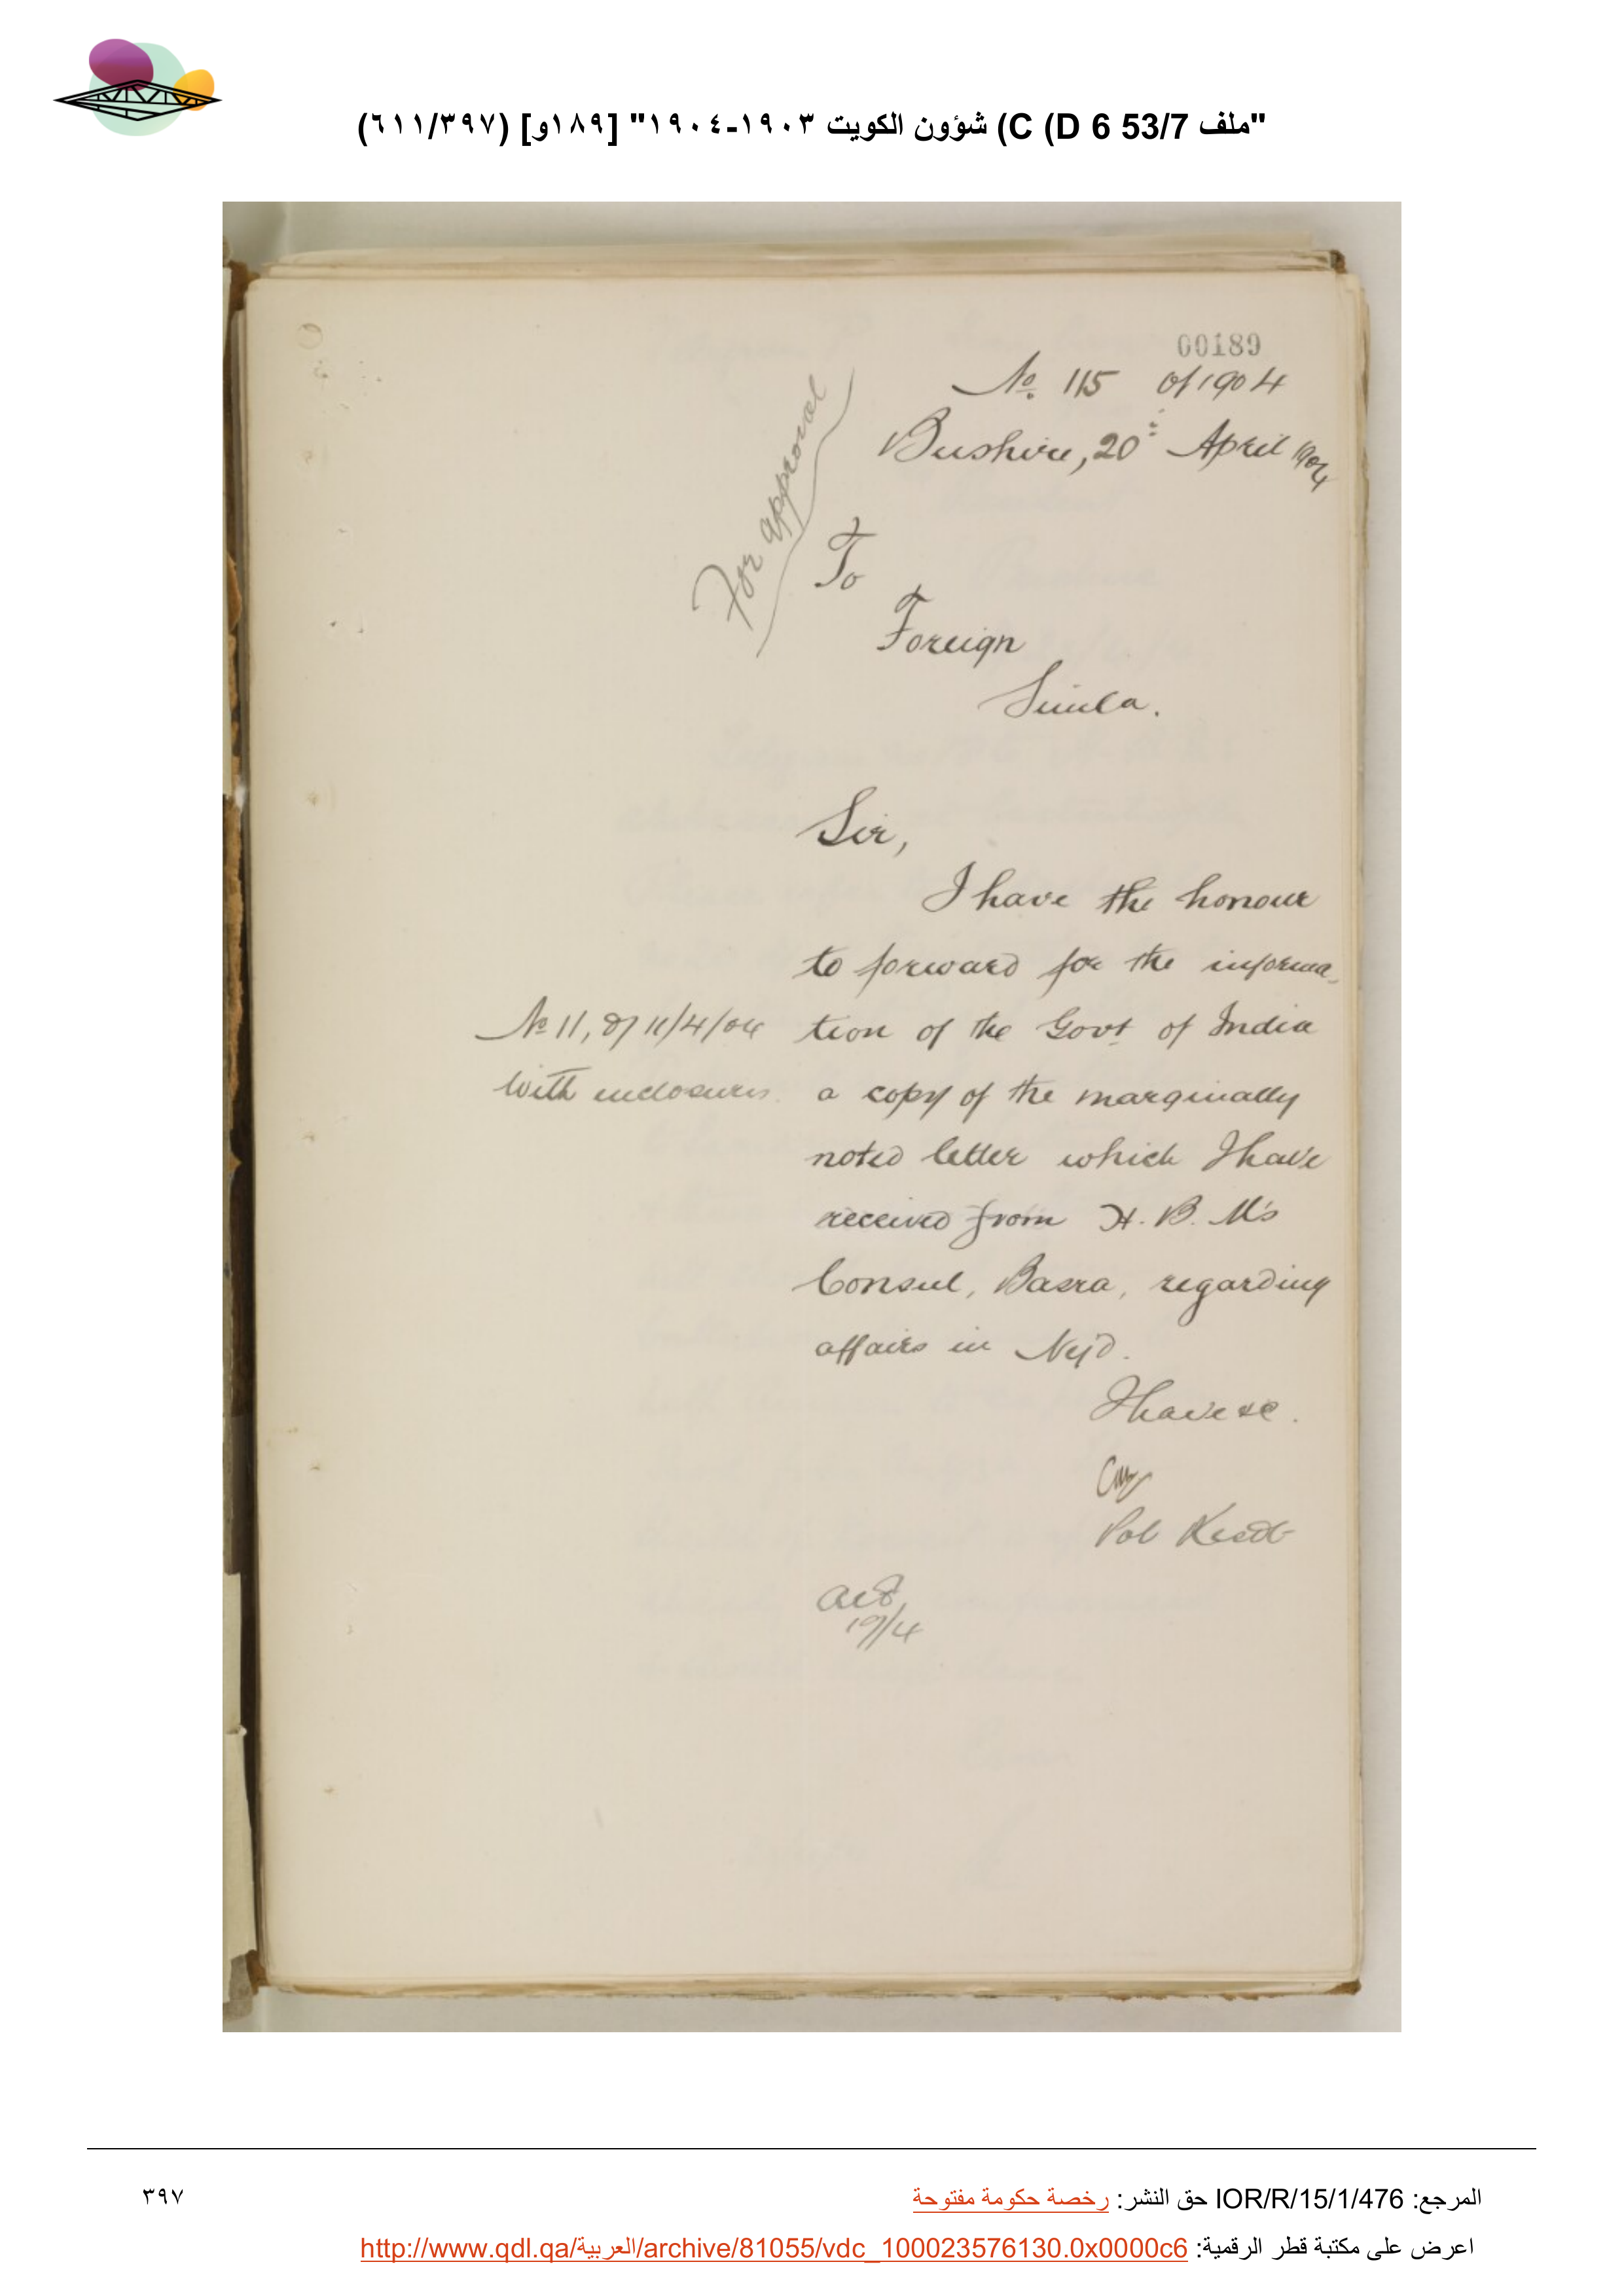 "ملف 53/7 C (D 6) شؤون الكويت ١٩٠٣-١٩٠٤" [١٨٩و] (٦١١/٣٩٧)
00189
No. 115 of 1904
Bushire, 20th April 1904
For approval
To
Foreign
Simla.
Sir,
I have the honour
to forward for the informa-
No 11, of 11/4/04 tion of the Govt of India
With enclosures. a copy of the marginally
noted letter which I have
received from H. B. M's
Consul, Basra, regarding
affairs in Nejd.
I have &c.
Pol Resdt
19/4
المرجع: IOR/R/15/1/476 حق النشر: رخصة حكومة مفتوحة
٣٩٧
اعرض على مكتبة قطر الرقمية: http://www.qdl.qa/العربية/archive/81055/vdc_100023576130.0x0000c6